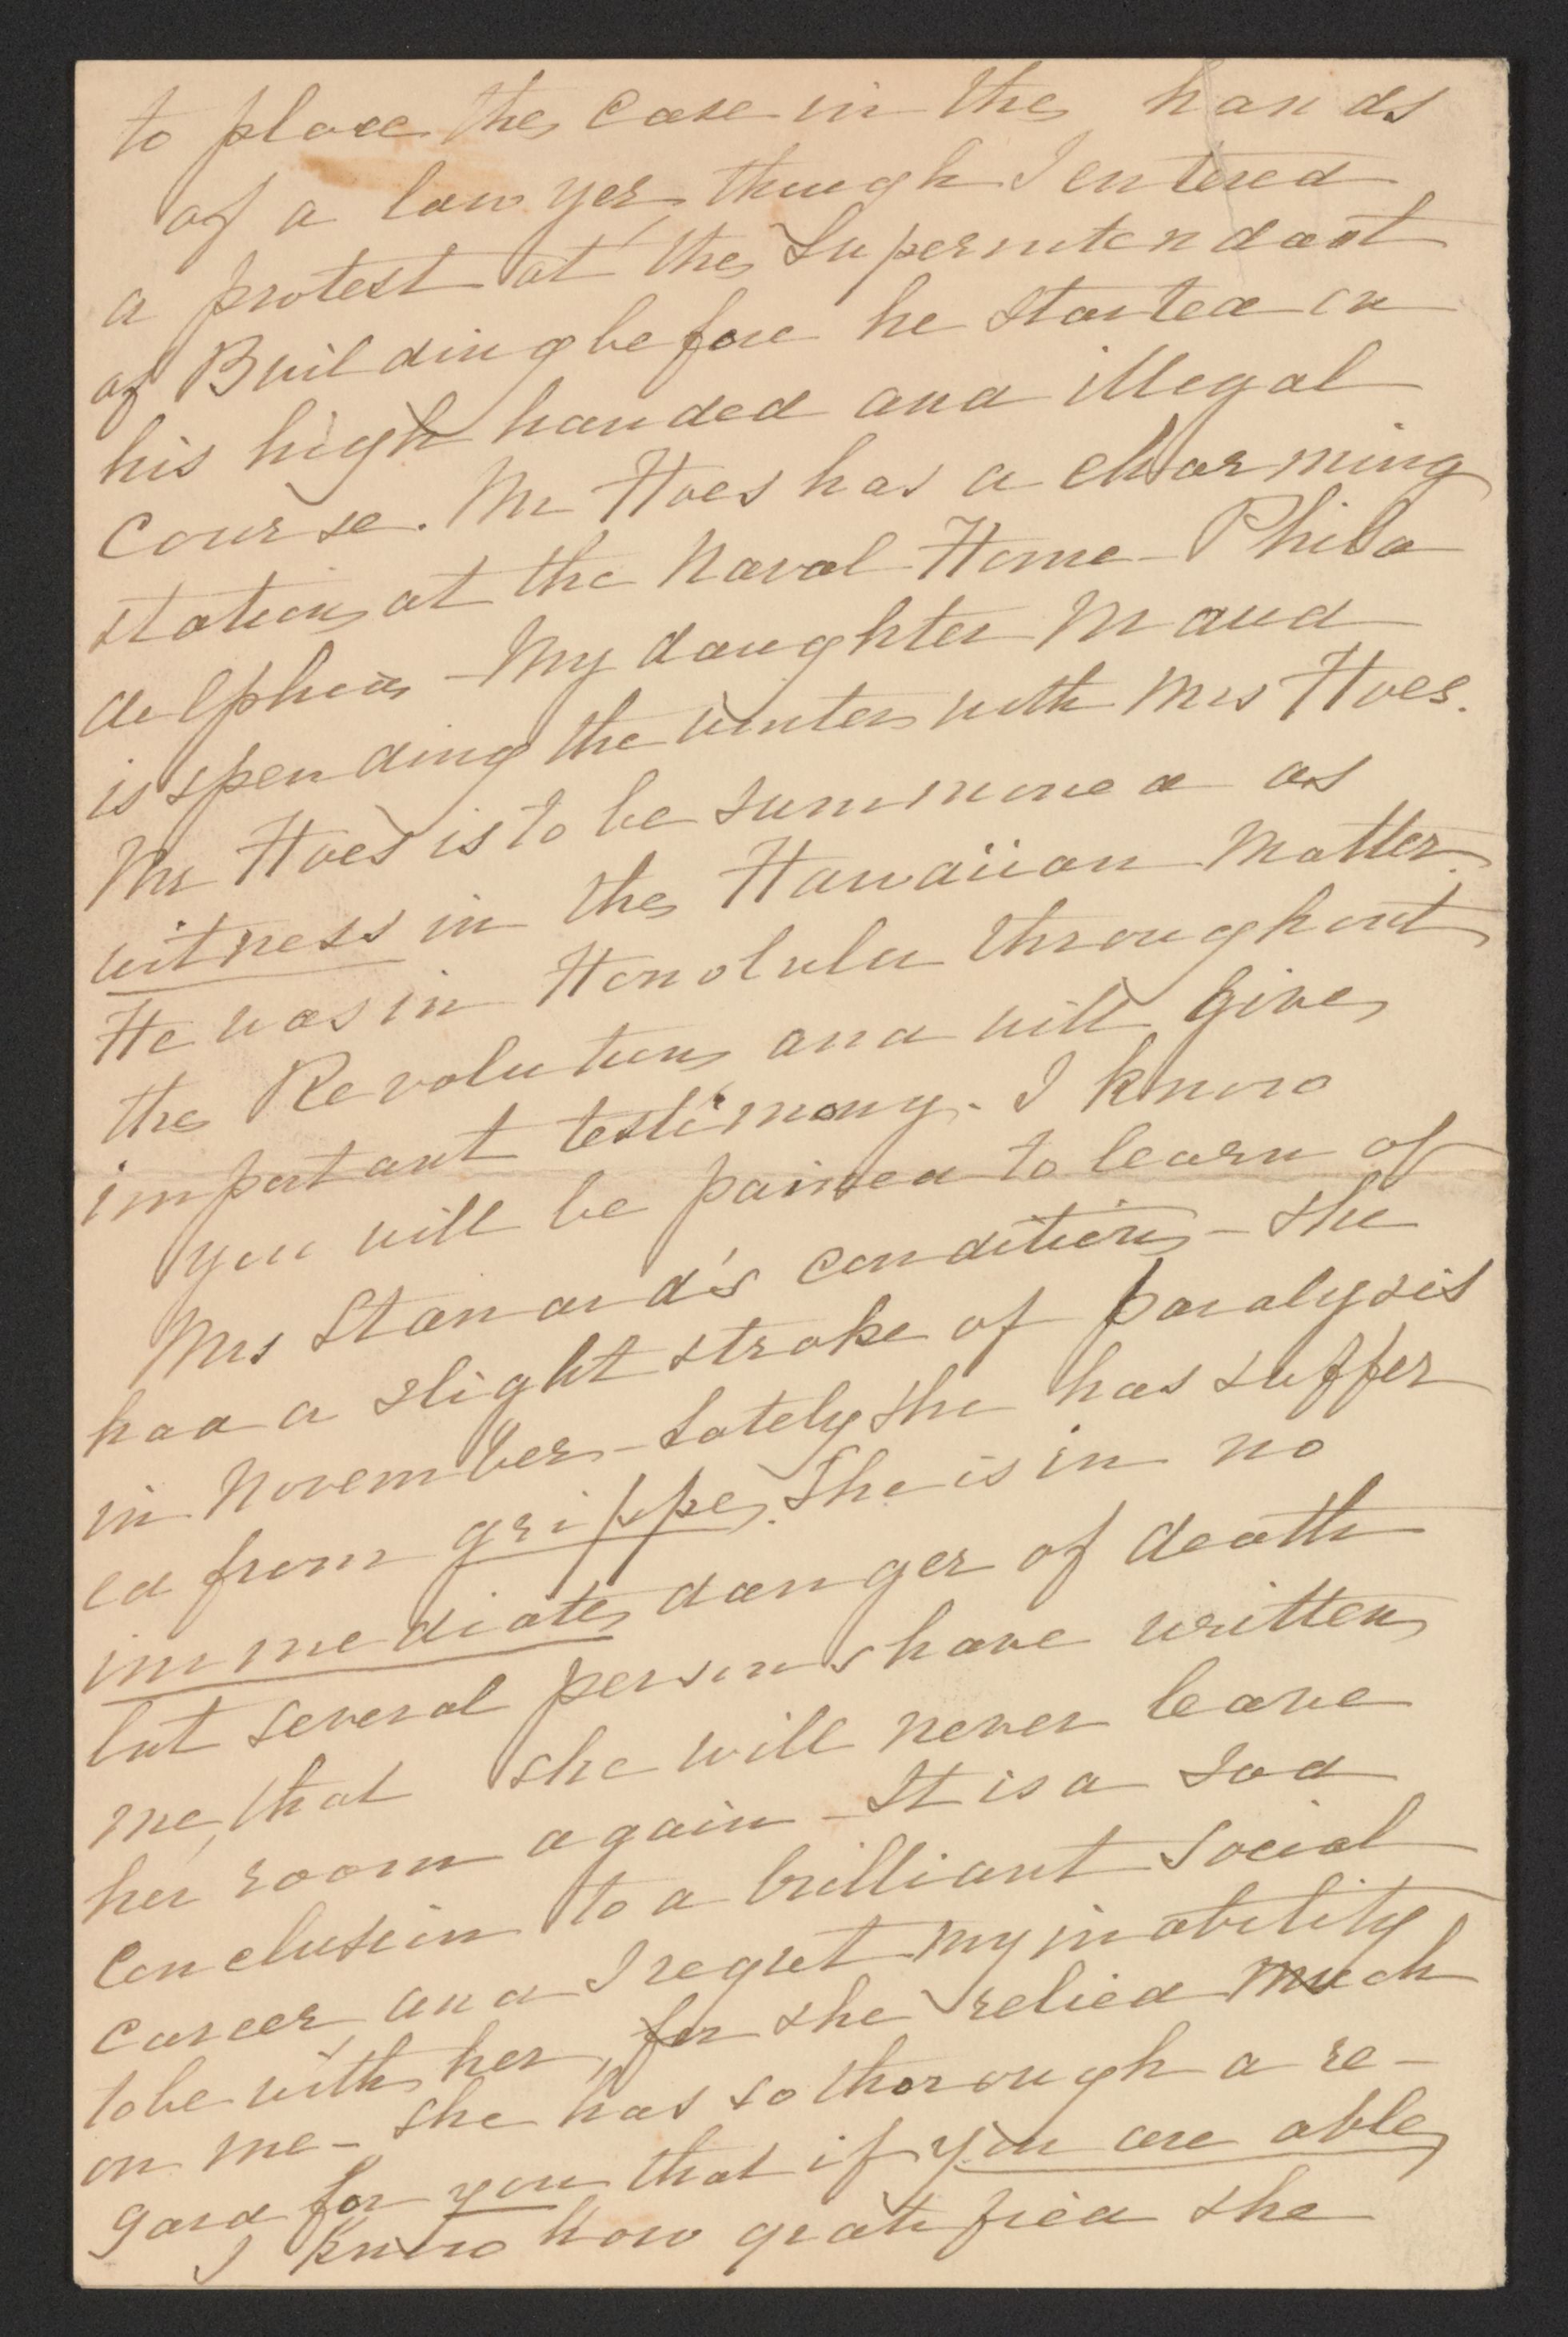 to place the case in the hands
of a lawyer, though I entered
a protest at the Superintendant
of Building before he started on
his high handed and illegal
course. Mr Hoes has a charming
station at the Naval Home - Phila
delphia - My daughter Maud
is spending the winter with Mrs Hoes.
Mr Hoes is to be summoned as
witness in the Hawaiian matter.
He was in Honolulu throughout
the Revolution and will give
important testimony. I know
you will be pained to learn of
Mrs Stanard's condition - She
had a slight stroke of paralysis
in November - Lately she has suffer
ed from grippe. She is in no
immediate danger of death
but several persons have written
me, that she will never leave
her room again - It is a sad
conclusion to a brilliant social
career, and I regret my inability
to be with her, for she relied much
on me - She has so thorough a re-
gard for you that if you are able,
I know how gratified she